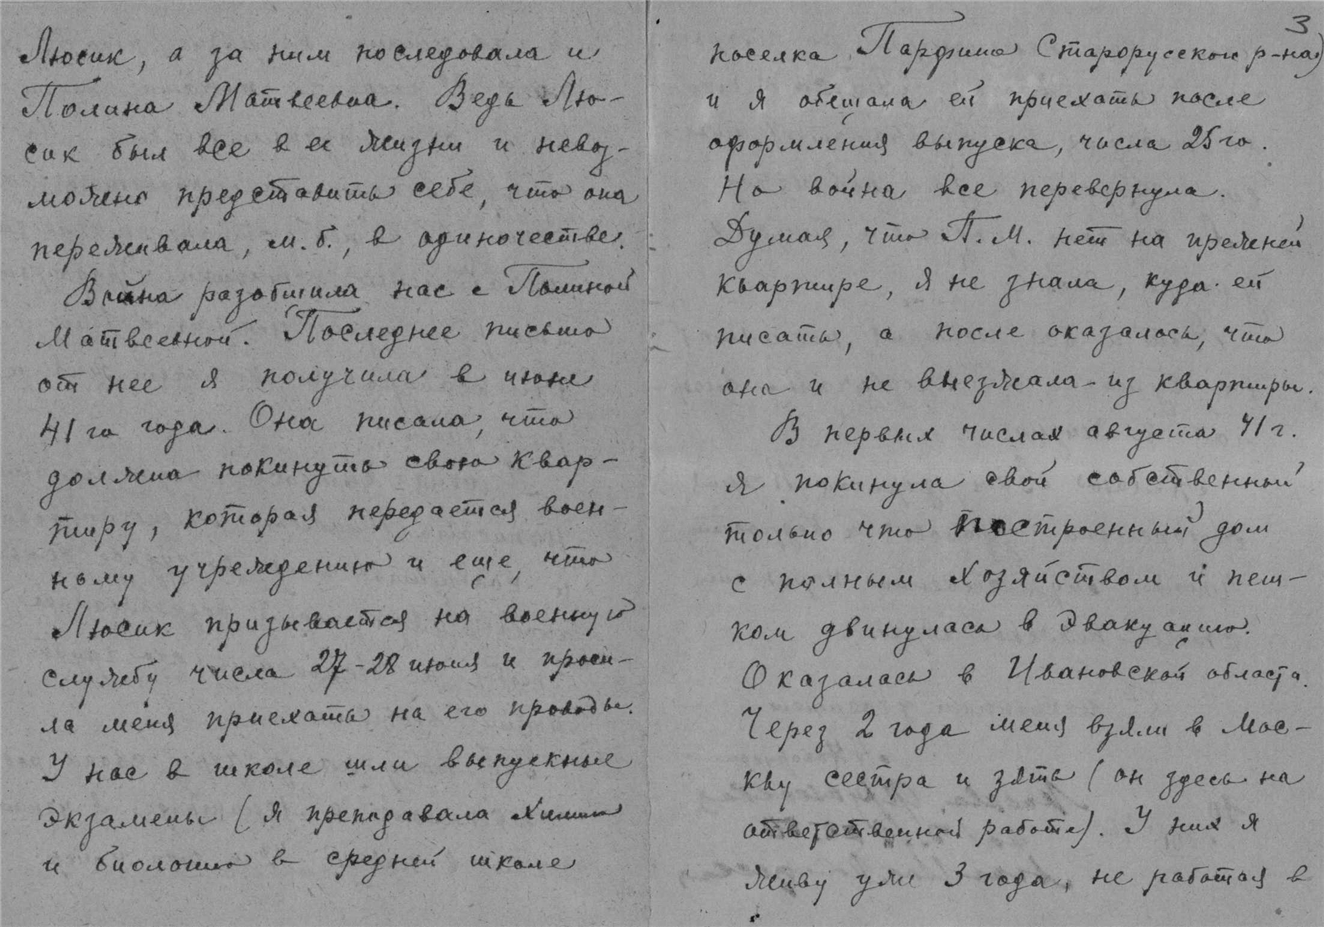 Люсик, а за ним последовала и
Полина Матвеевна. Ведь Лю-
сик был все в ее жизни и невоз-
можно представить себе, что она
переживала, м.б., в одиночестве.
Война разобщила нас с Полиной
Матвеевной. Последнее письмо
от нее я получила в июне
41 го года. Она писала, что
должна покинуть свою квар-
тиру, которая передается воен-
ному учреждению и еще, что
Люсик призывается на военную
службу числа 27-28 июня и проси-
ла меня приехать на его проводы.
У нас в школе шли выпускные
экзамены (я преподавала химию
и биологию в средней школе
3
поселка Парфино Старорусского р-на)
и я обещала ей приехать после
оформления выпуска, числа 25 го.
Но война все перевернула.
Думая, что П.М. нет на прежней
квартире, я не знала, куда ей
писать, а после оказалось, что
она и не выезжала из квартиры.
В первых числах августа 41 г.
я покинула свой собственный
только что построенный дом
с полным хозяйством и пеш-
ком двинулась в эвакуацию.
Оказалась в Ивановской области.
Через 2 года меня взяли в Мос-
кву сестра и зять (он здесь на
ответственной работе). У них я
живу уже 3 года, не работая в